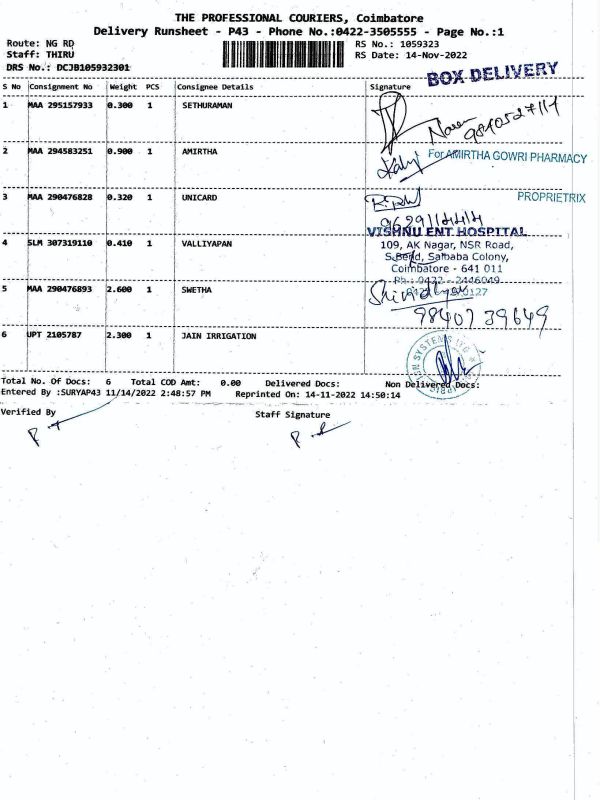 THE PROFESSIONAL COURIERS, Coimbatore
Delivery Runsheet - P43 - Phone No.:0422-3505555 - Page No.:1
Route: NG RD RS No.: 1059323
Staff: THIRU RS Date: 14-Nov-2022
DRS No.: DCJB105932301
BOX DELIVERY
S No Consignment No Weight PCS Consignee Details Signature
1 MAA 295157933 0.300 1 SETHURAMAN
9840527114
2 MAA 294583251 0.900 1 AMIRTHA
For AMIRTHA GOWRI PHARMACY
3 MAA 290476828 0.320 1 UNICARD
PROPRIETRIX
VISHNU ENT HOSPITAL
4 SLM 307319110 0.410 1 VALLIYAPAN
109, AK Nagar, NSR Road,
S.Bend, Saibaba Colony,
Coimbatore - 641 011
Ph : 0422 - 2446049
5 MAA 290476893 2.600 1 SWETHA
9840739649
6 UPT 2105787 2.300 1 JAIN IRRIGATION
Total No. Of Docs: 6 Total COD Amt: 0.00 Delivered Docs: Non Delivered Docs:
Entered By :SURYAP43 11/14/2022 2:48:57 PM Reprinted On: 14-11-2022 14:50:14
Verified By Staff Signature